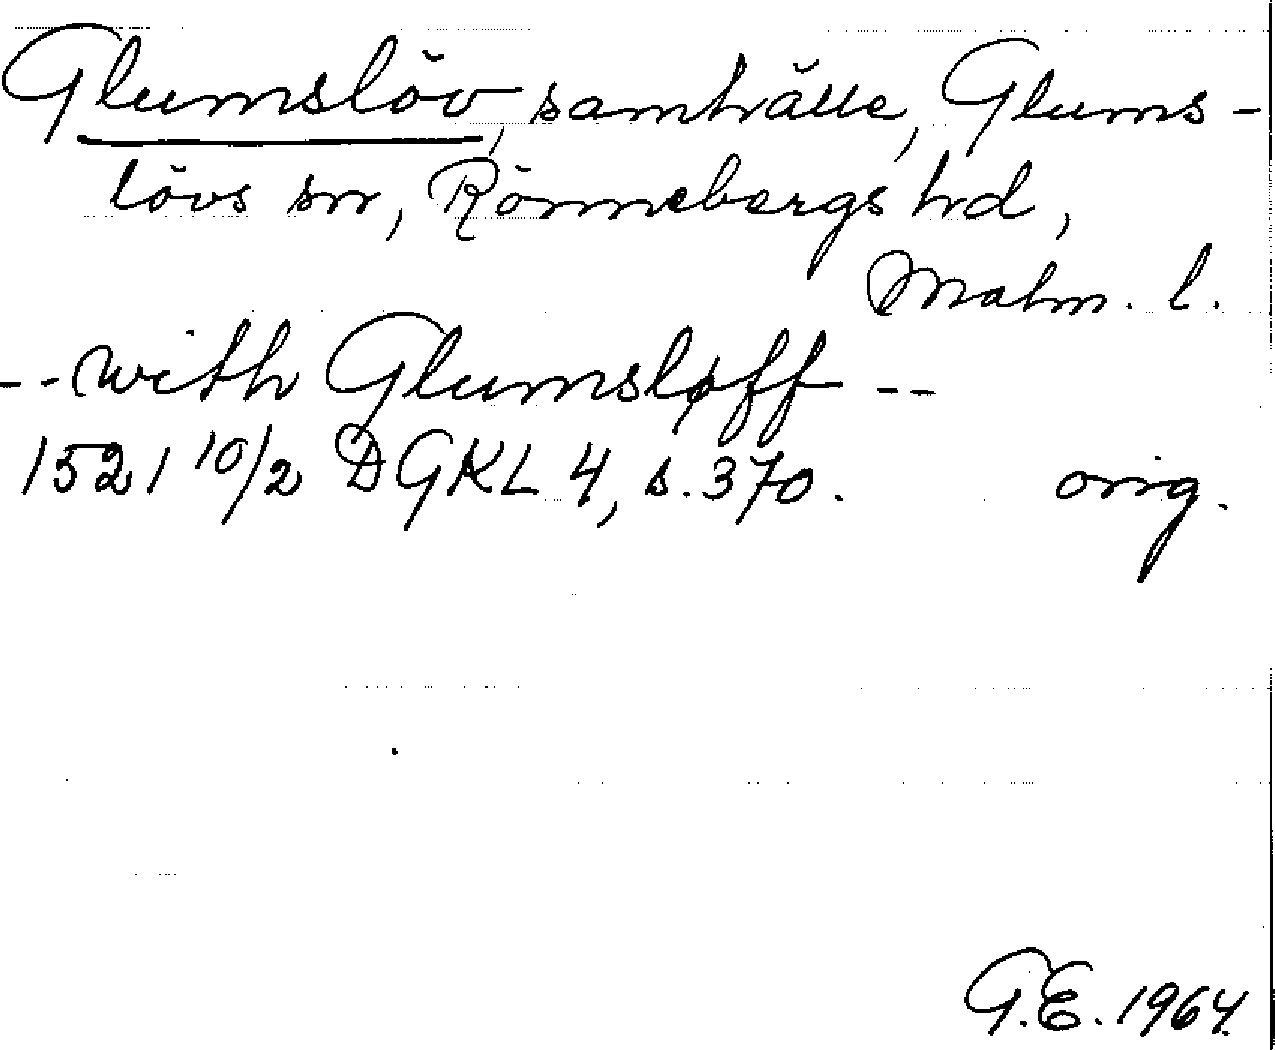 Glumslöv, samhälle, Glums-
lövs sn, Rönnebergs hd,
Malm. l.
-- with Glumsløff --
1521 10/2 DGKL 4, s. 370. orig.
G.E. 1964.